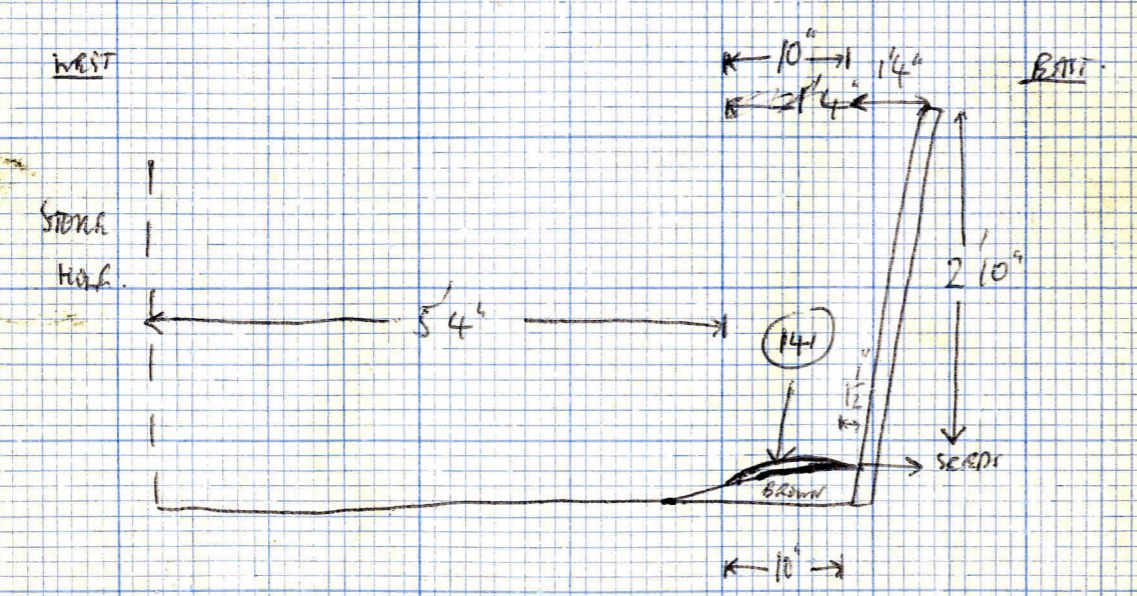 WEST
10"
1'4"
EAST.
1'4"
STONE
HOLE.
2'10"
5'4"
141
1½"
SEEDS
BROWN
10"